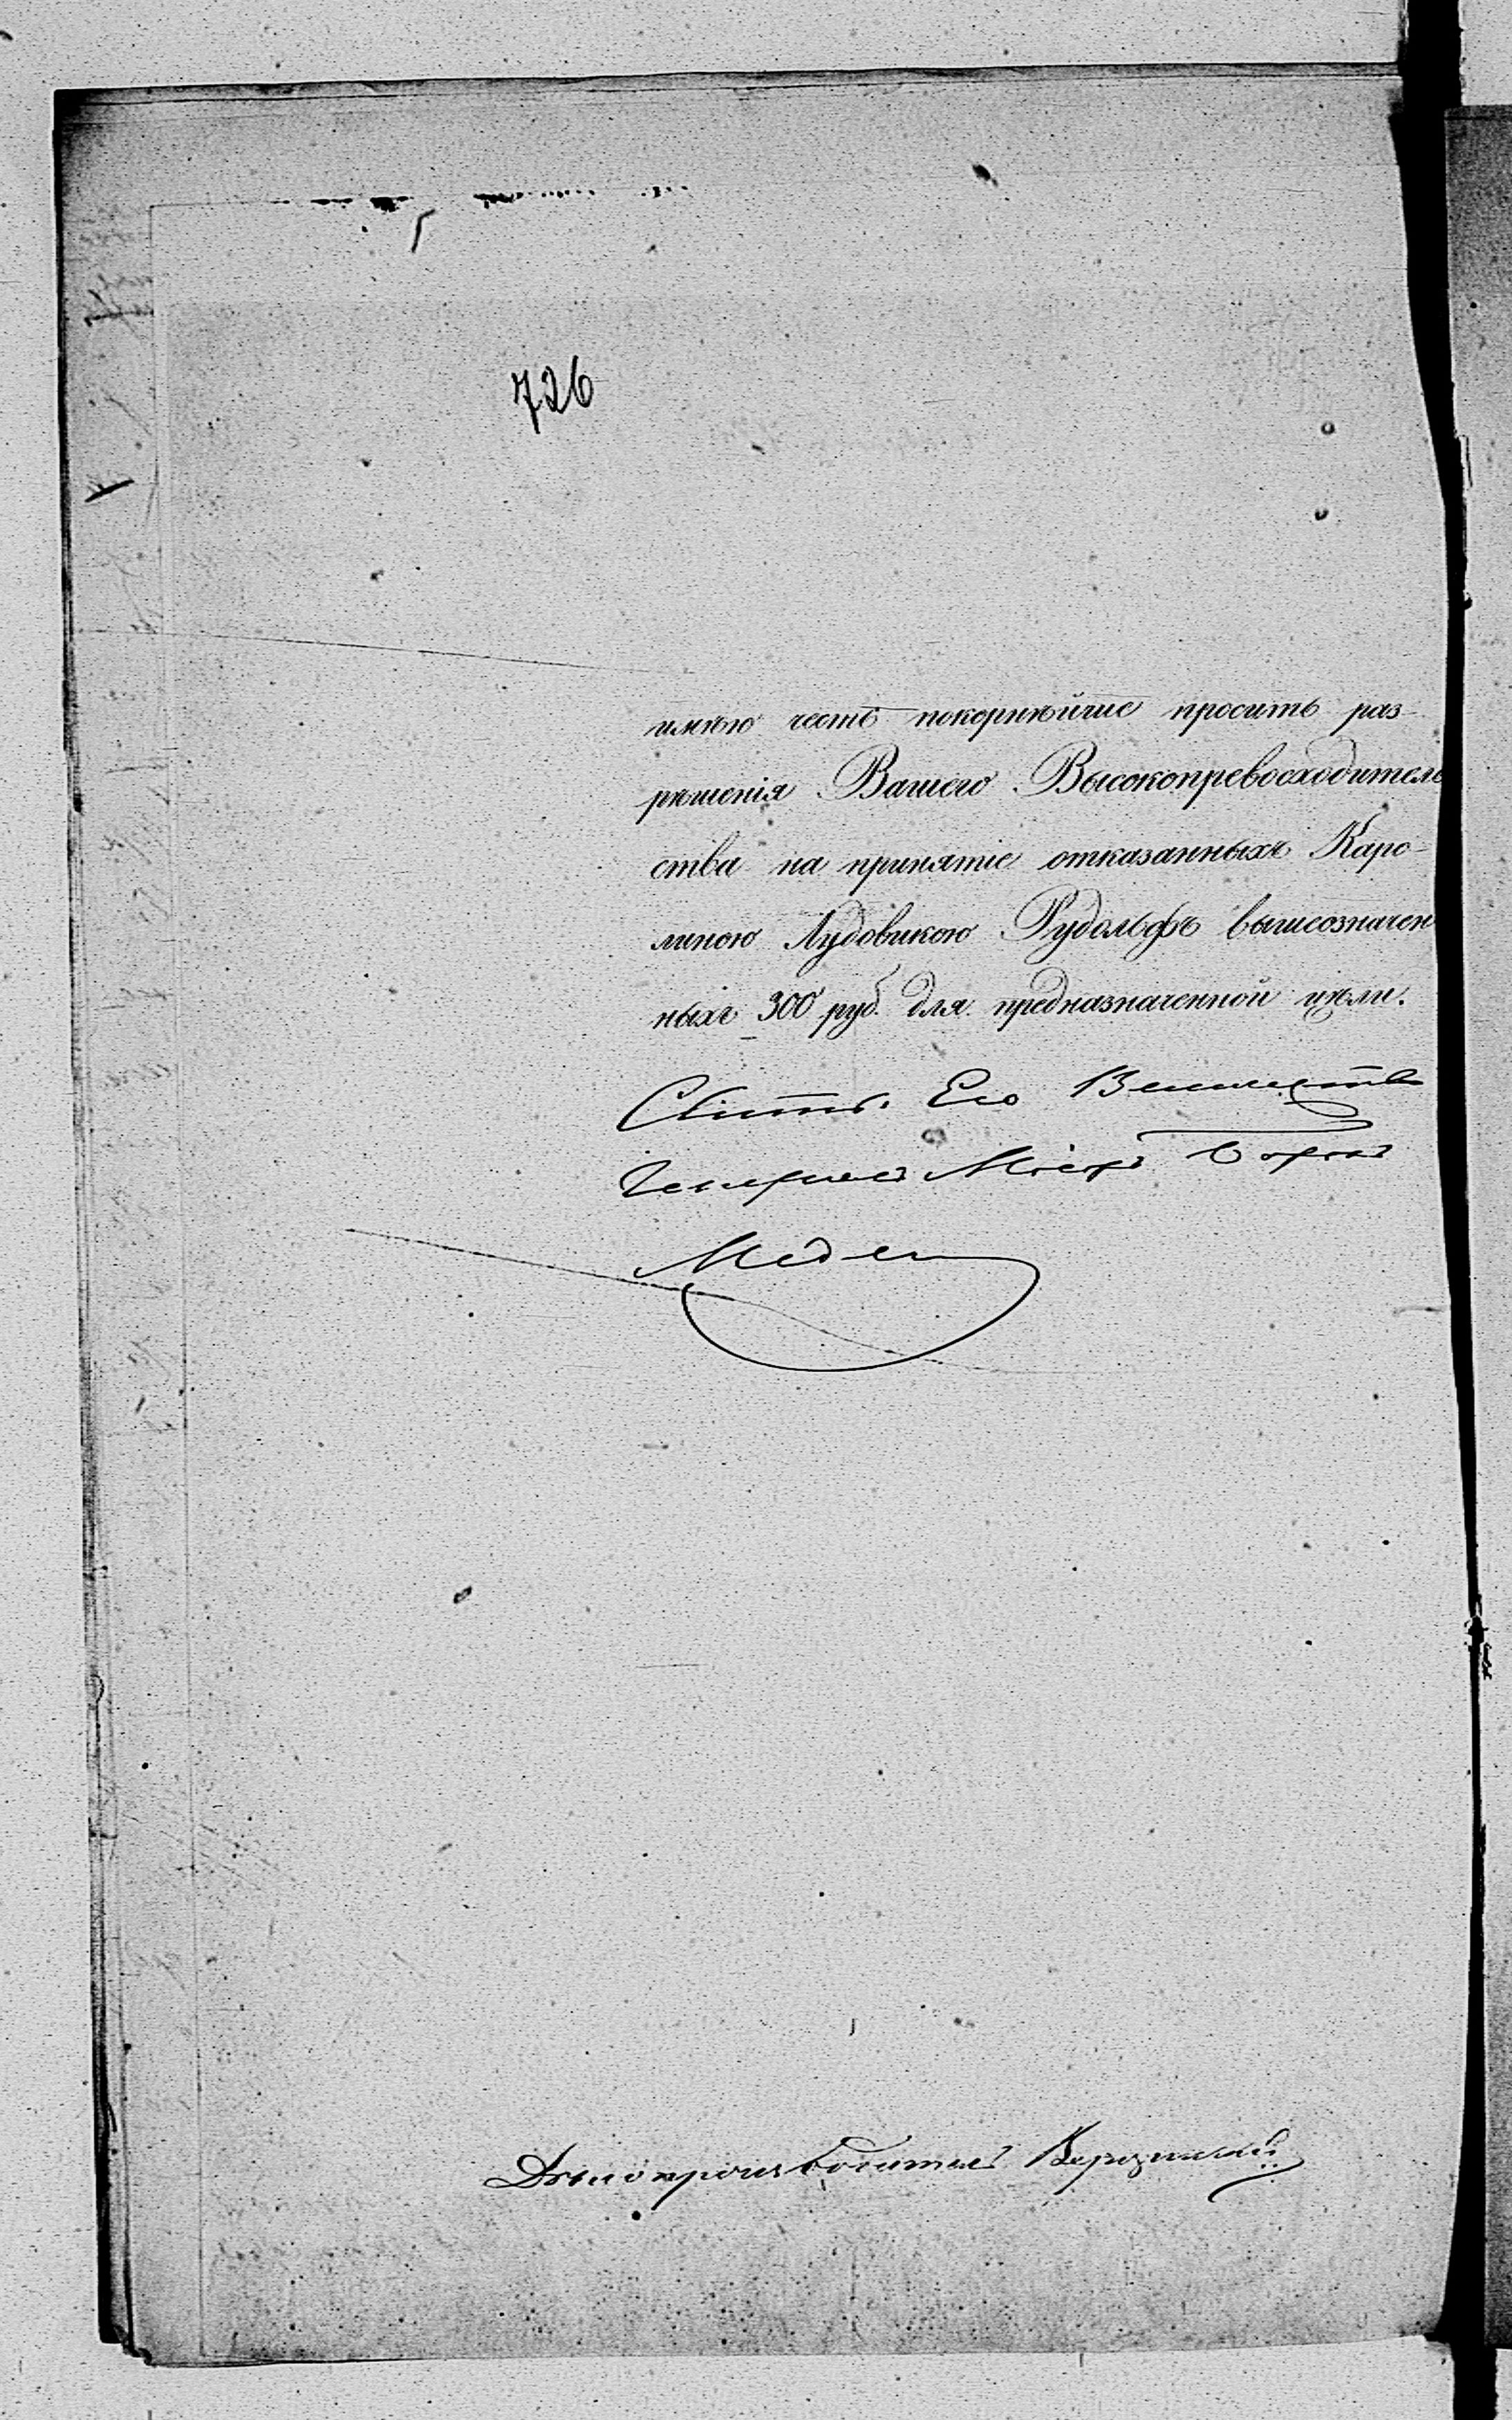 726
имѣю честь покорнѣйше просить раз-
рѣшенія Вашего Высокопревосходитель
ства на принятіе отказанныхъ Каро-
линою Лудовикою Рудольфъ вышеозначен
ныхъ 300 руб. для предназначенной цѣли.
Свиты Его Величества
Генералъ Маіоръ Баронъ
Медем
Дѣлопроизводитель